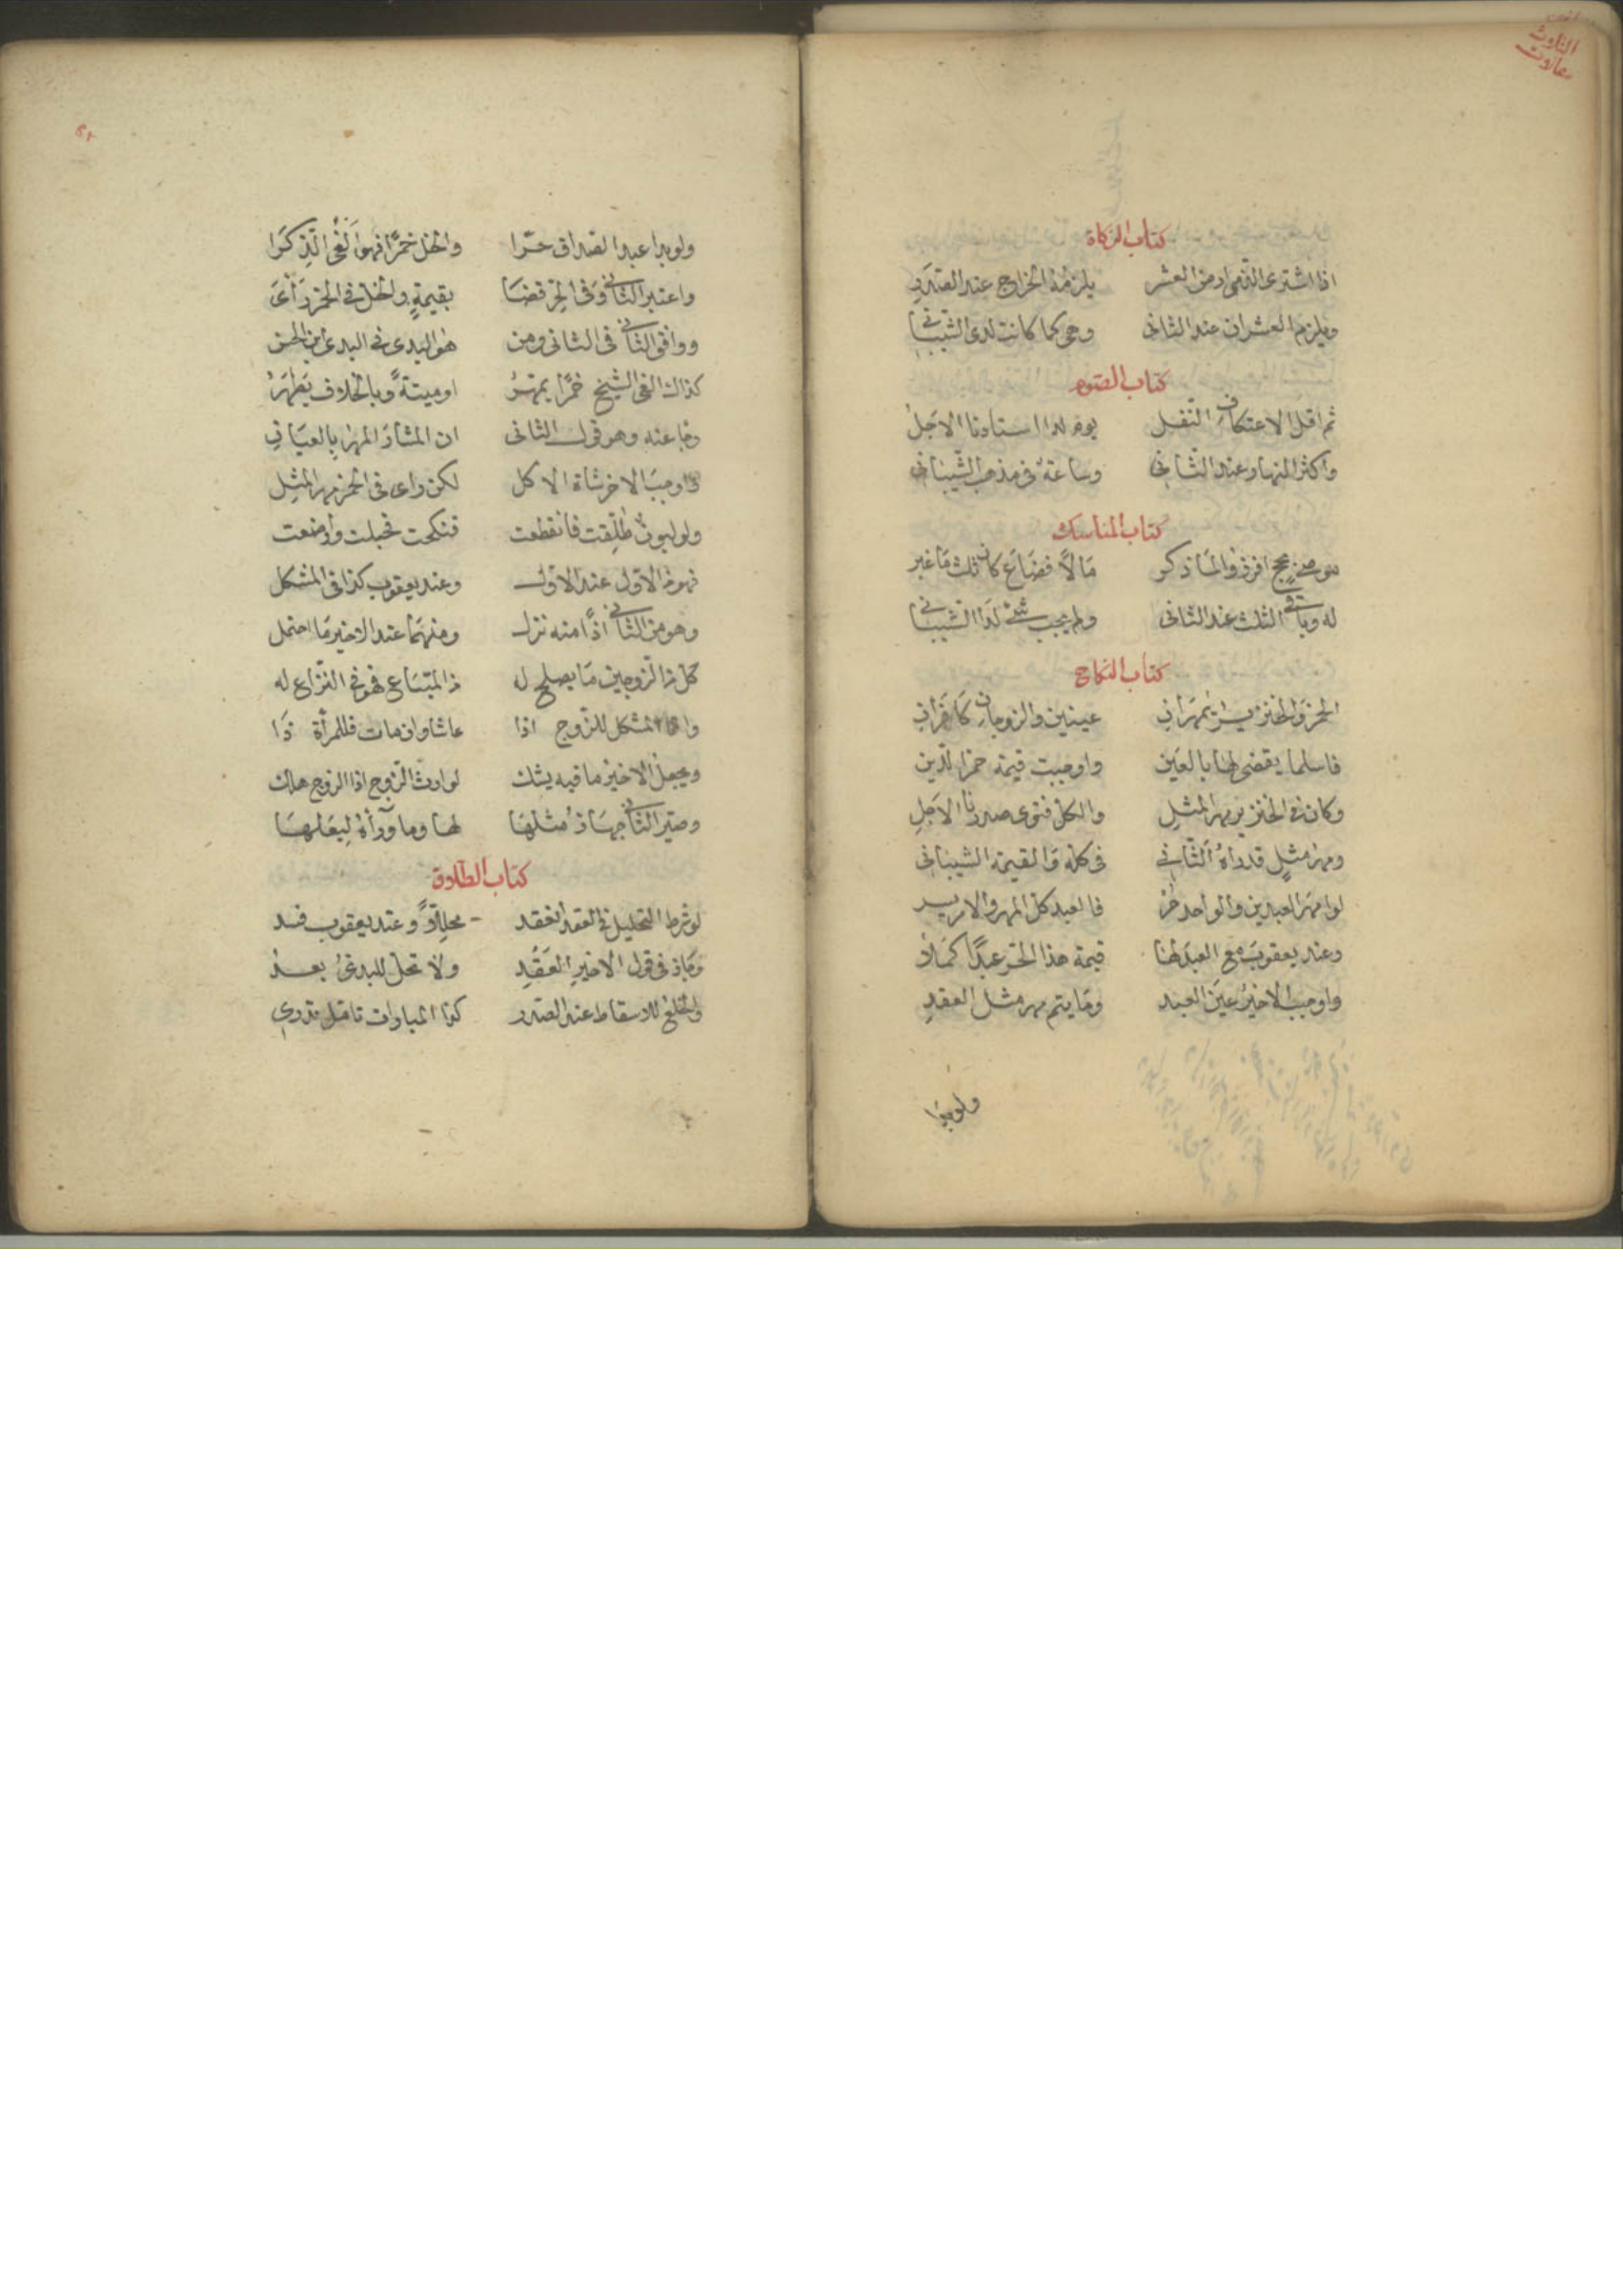 كتاب الزكاة
اذا اشترى الذمى ارض العشر يلزمه الخراج عند الصدر
ويلزم العشران عند الثانى وهى كما كانت لدى الشيبانى
كتاب الصوم
ثم اقل الاعتكاف النفل يوم لدا استاذنا الاجل
واكثر النهار عند الثانى وساعة فى مذهب الشيبانى
كتاب المناسك
بحج افرزوا لما ذكر مالا فضاع كان ثلث ما غبر
له وباقى الثلث عند الثانى ولم يجب شئ لدا الشيبانى
كتاب النكاح
الخمر والخنزير يمهران عينين والزوجان كافران
فاسلما يقضى لها بالعين واوجبت قيمة خمر الدين
وكان فى الخنزير مهر المثل والكل فتوى صدرنا الاجل
ومهر مثل قد رآه الثانى فى كله والقيمة الشيبانى
لو امهر العبدين والواحد حر فالعبد كل المهر والامر
وعند يعقوب مع العبد لها قيمة هذا الحر عبدا كملا
واوجب الاخير عين العبد وما يتم مهر مثل العقد
ولو بدا
ولو بدا عبد الصداق حرا والخل خمرا فهو الغى الذكرا
واعتبر الثانى وفى الحر قضا بقيمة والخل فى الخمر رأى
ووافق الثانى فى الثانى ومن هو البدى فى البدى ابن الحسن
كذاك الغى الشيخ خمرا يمهر او ميتة وبالخلاف يظهر
وجا عنه وهو قول الثانى ان المشار المهر بالعيان
واوجب الاخر شاة الاكل لكن راى فى الخمر مهر المثل
ولو لبون طلقت فانقطعت فنكحت فحبلت وارضعت
فهو من الاول عند الاول وعند يعقوب كذا فى المشكل
وهو من الثانى اذا منه نزل ومنهما عند الاخير ما احتمل
كل من الزوجين ما يصلح له ذا المتاع فهو فى النزاع له
المشكل للزوج اذا عاشا وان مات فللمرأة ذا
ويجعل الاخير ما فيه يشك لوارث الزوج اذا الزوج هلك
وصير الثانى جهاز مثلها لها وما وراءه لبعلها
كتاب الطلاق
لو شرط التحليل فى العقد انعقد محللا وعند يعقوب فسد
وجاز فى قول الاخير العقد ولا تحل للبدئ بعد
والخلع للاسقاط عند الصدر كذا المبارات تامل تدرى